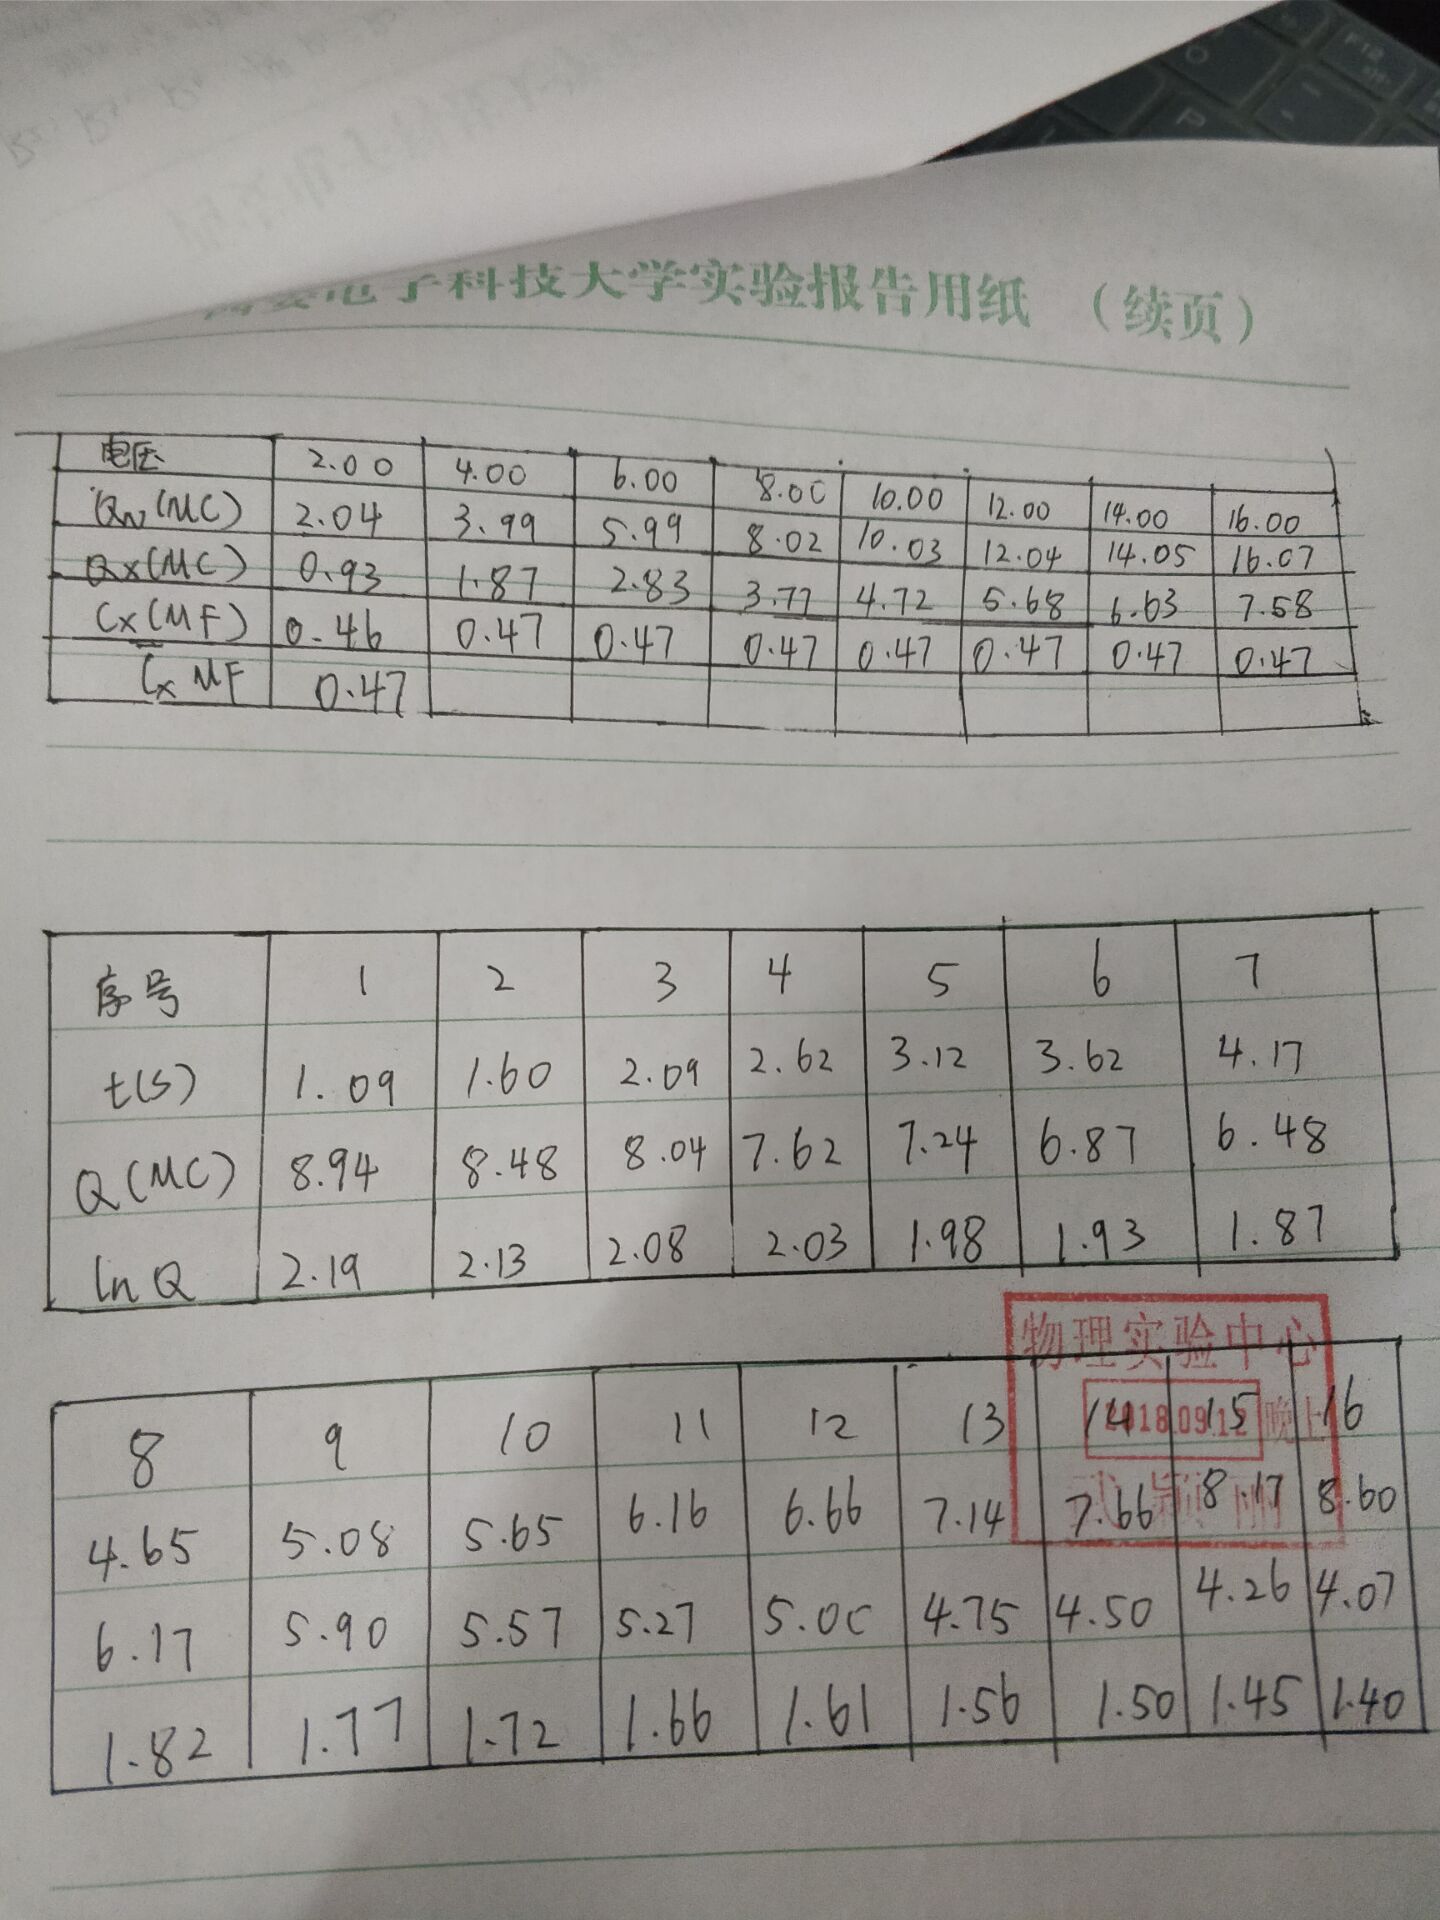 电子科技大学实验报告用纸 （续页）
电压 2.00 4.00 6.00 8.00 10.00 12.00 14.00 16.00
QN(MC) 2.04 3.99 5.99 8.02 10.03 12.04 14.05 16.07
Qx(MC) 0.93 1.87 2.83 3.77 4.72 5.68 6.63 7.58
Cx(MF) 0.46 0.47 0.47 0.47 0.47 0.47 0.47 0.47
C̅x MF 0.47
序号 1 2 3 4 5 6 7
t(s) 1.09 1.60 2.09 2.62 3.12 3.62 4.17
Q(MC) 8.94 8.48 8.04 7.62 7.24 6.87 6.48
lnQ 2.19 2.13 2.08 2.03 1.98 1.93 1.87
物理实验中心
2018.09.12 晚上
8 9 10 11 12 13 14 15 16
4.65 5.08 5.65 6.16 6.66 7.14 7.66 8.17 8.60
6.17 5.90 5.57 5.27 5.00 4.75 4.50 4.26 4.07
1.82 1.77 1.72 1.66 1.61 1.56 1.50 1.45 1.40